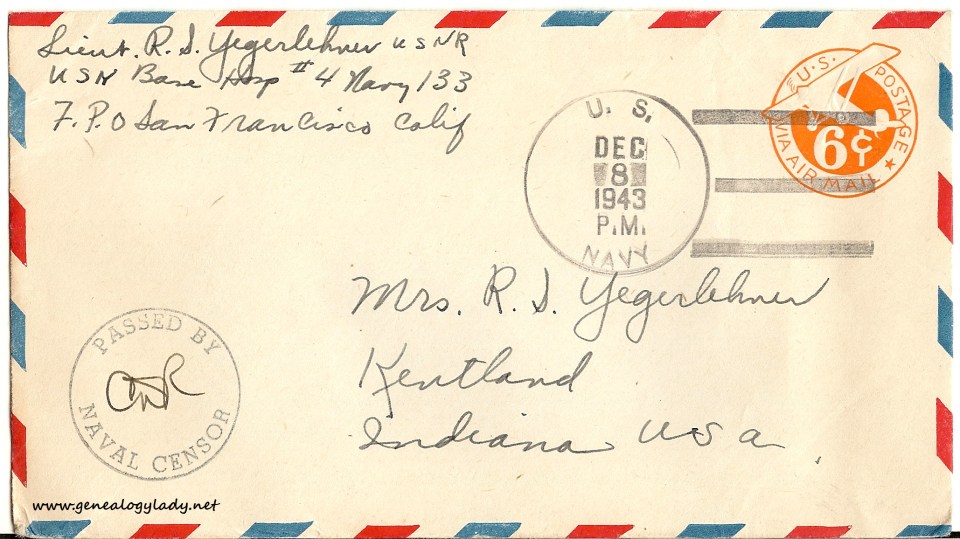 Lieut. R. S. Yegerlehner USNR
USN Base Hosp #4 Navy 133
F.P.O San Francisco Calif
U. S.
DEC
8
1943
P.M.
NAVY
U.S. POSTAGE
6¢
VIA AIR MAIL
Mrs. R. S. Yegerlehner
Kentland
Indiana USA
PASSED BY
NAVAL CENSOR
www.genealogylady.net